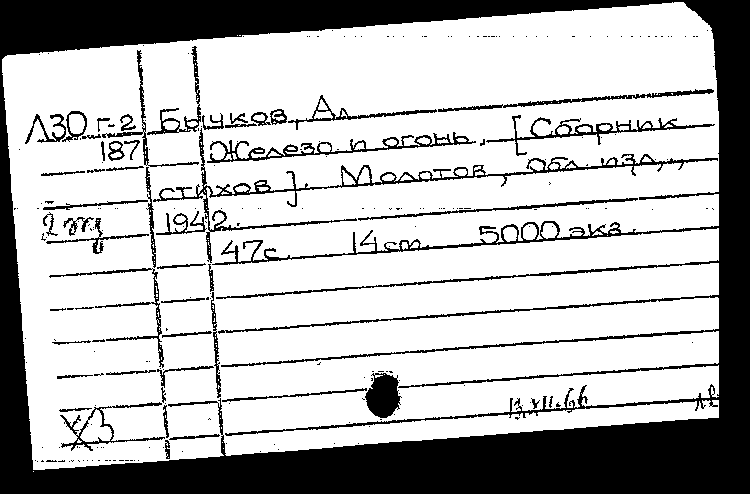 Л30 г-2 Бычков, Ал
187 Железо и огонь. [Сборник
стихов]. Молотов, обл. изд.,
1942.
47с. 14cm. 5000 экз.
X3
13.XII.66